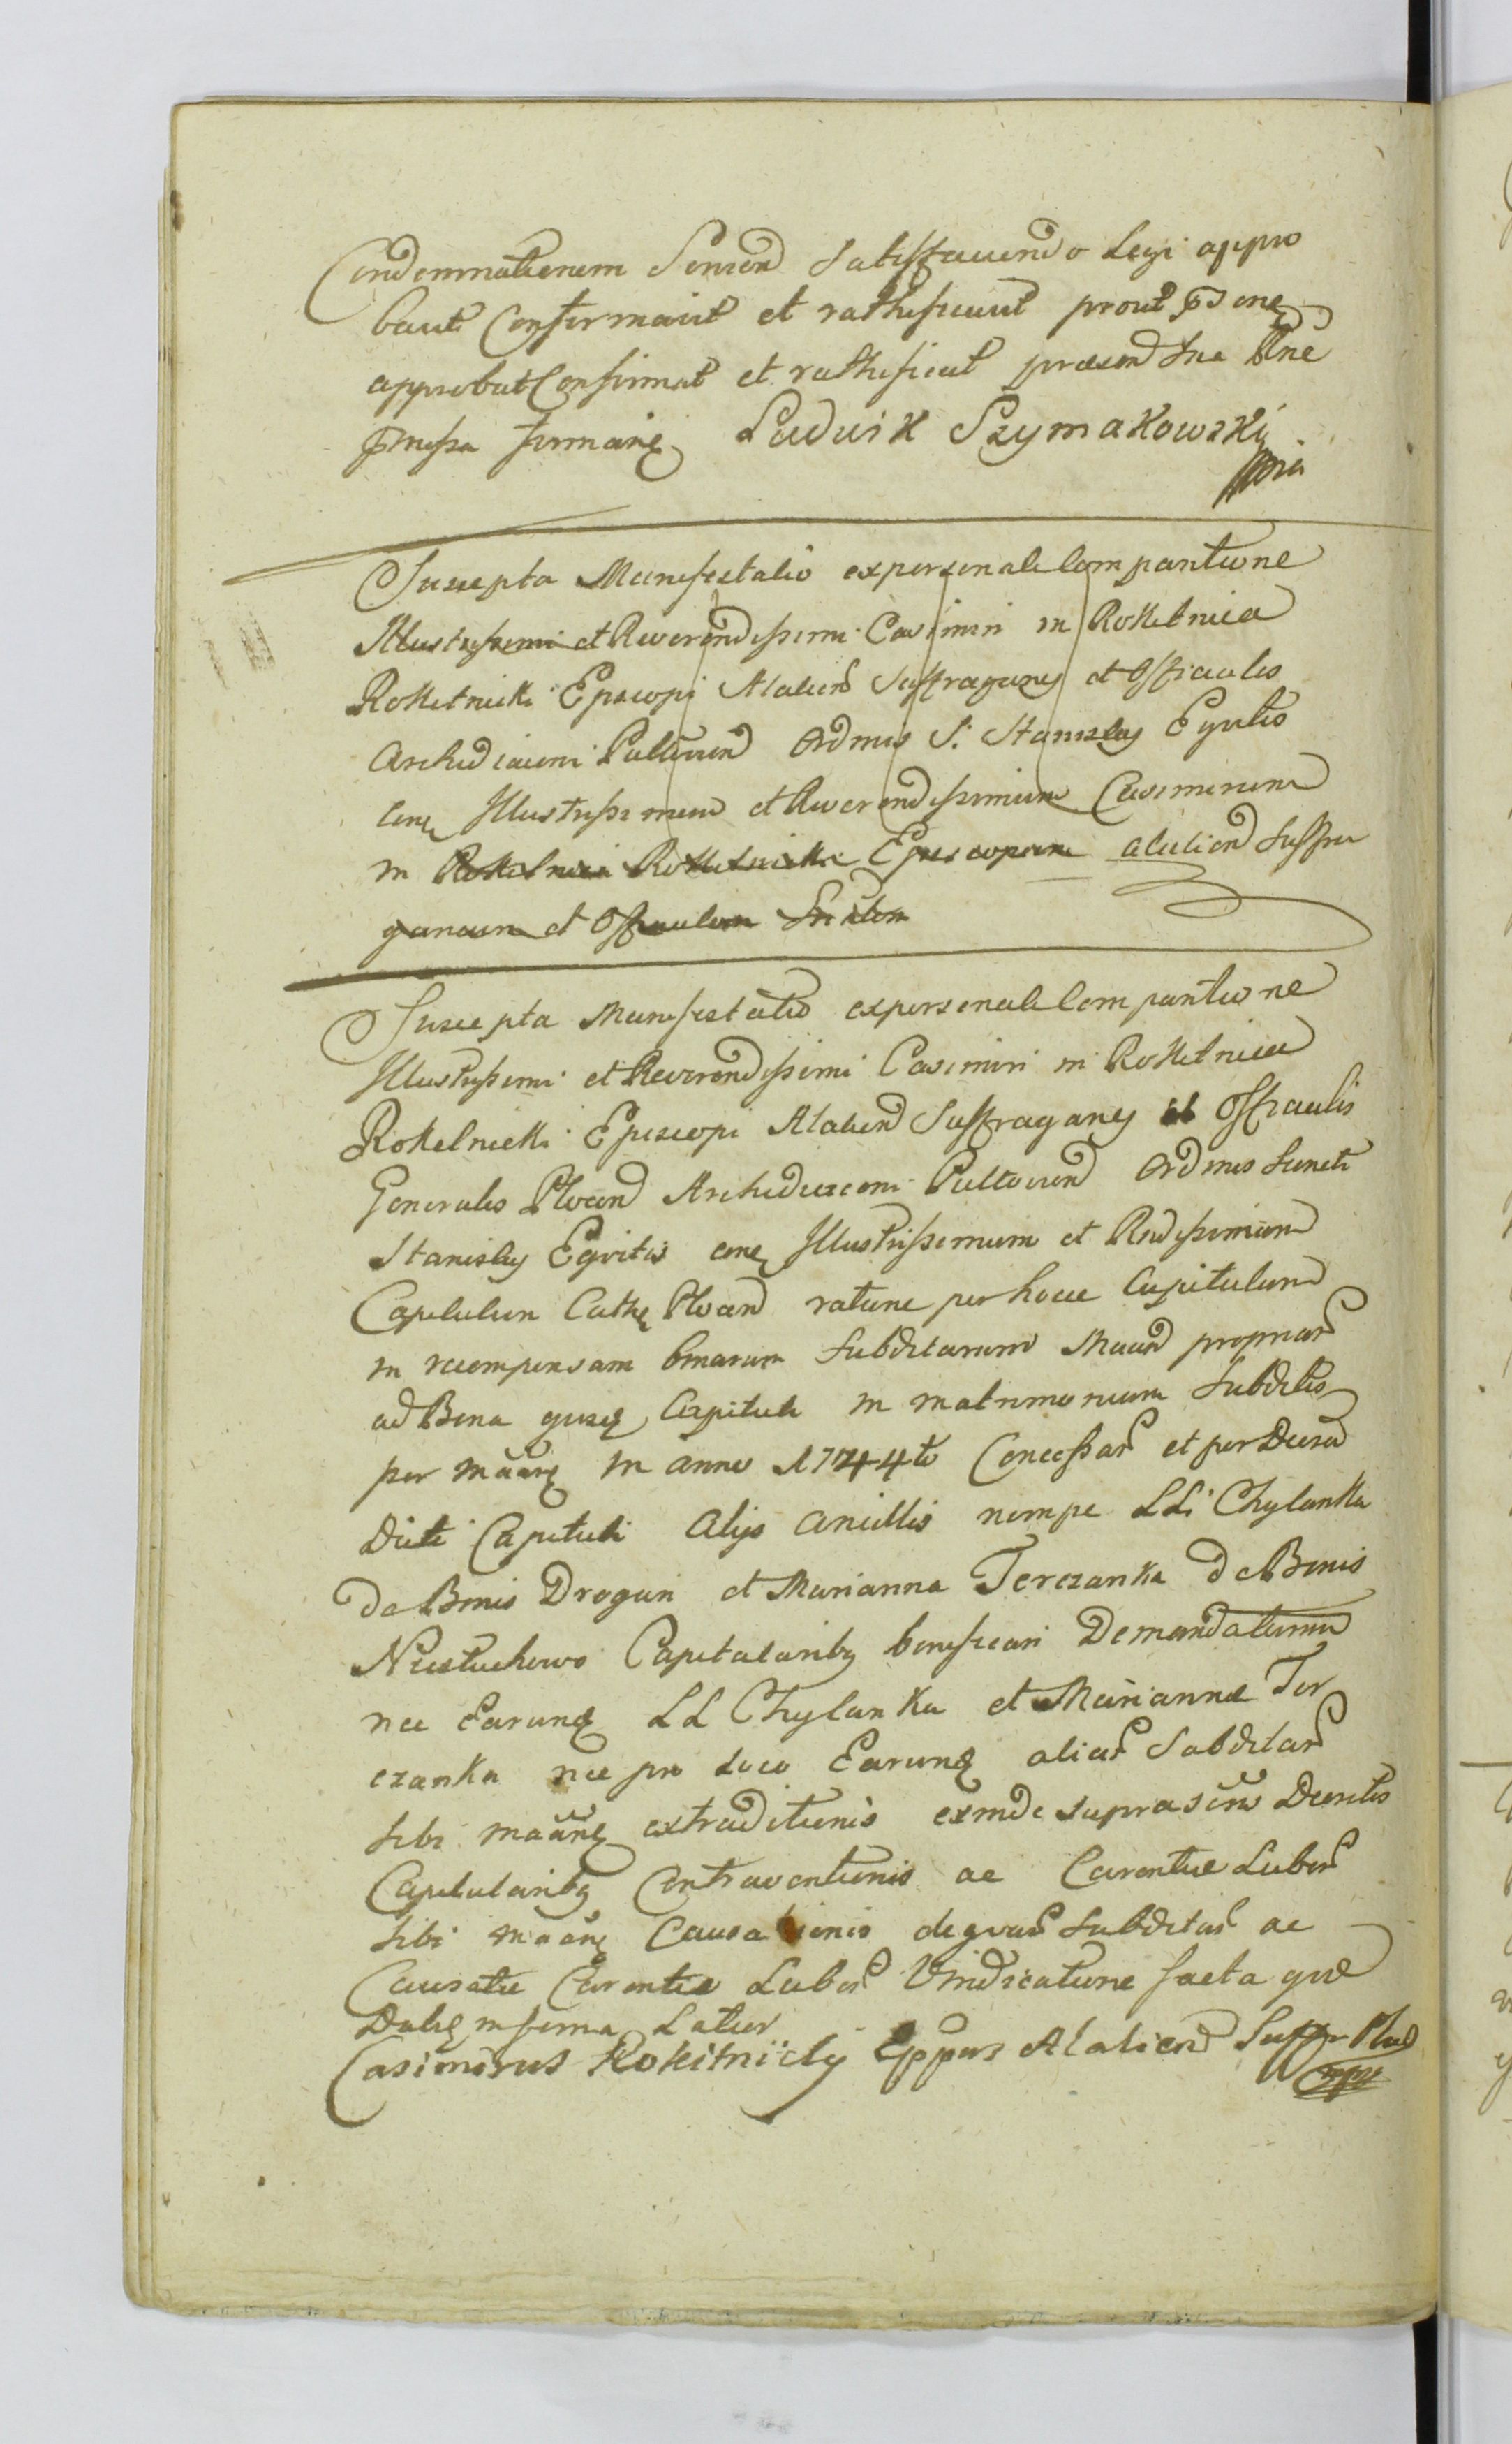 Condemnationem Sencien Satisfaciendo Legi appro
bavit Confirmavit et rathificavit prout
approbat Confirmat et rathificat praesen
firmané Ludwik Szymakowski
mp
Suscepta Manifestatio ex personali Comparitione
Illustrissimi et Reverendissimi Casimiri in Rokitnica
Rokitnicki Episcopi Alalien Suffraganej et Officialis
Archidiaconi Pultovien Ordinis S. Stanislaj Equitis
cone Illustrissimum et Reverendissimum Casimirum
in Rokitnica Rokitnicki Episcopum Alalien Suffra
ganeum et Officialem
Suscepta Manifestatio ex personali Comparitione
Illustrissimi et Reverendissimi Casimiri in Rokitnica
Rokitnicki Episcopi Alalien Suffraganej et Officialis
Generalis Plocen Archidiaconi Pultovien Ordinis Sancti
Stanislaj Equitis cone Illustrissimum et Rndissimum
Capitulum Cathe Plocen ratione per hocce Capitulum
in recompensam binarum Subditarum Maan propriar
ad Bona ejusq Capituli in matrimonium Subditis
per maane in anno 1744to Concessar et per Decreta
Dicti Capituli Alijs Ancillis nempe LLi Chylanka
de Bonis Drogan et Marianna Terczanka de Bonis
Niestuchowo Capitularibq bonificari Demandatarum
nec Earunq LL Chylanka et Marianna Ter
czanka nec pro Loco Earunq aliar Subditar
Sibi maane extraditionis exinde suprascris Decretis
Capitularibq Contraventionis ac Carentiae Labor
Sibi maane Causationis de quar Subditar ac
Causatae Carentiae Labor Vindicatione facta quae
Datiq in forma Latior
Casimirus Rokitnicki Eppus Alalien Suffr Ploc
mpp